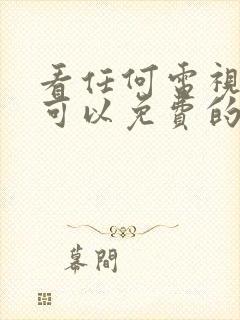 看任何電視
可以免費的
幕間